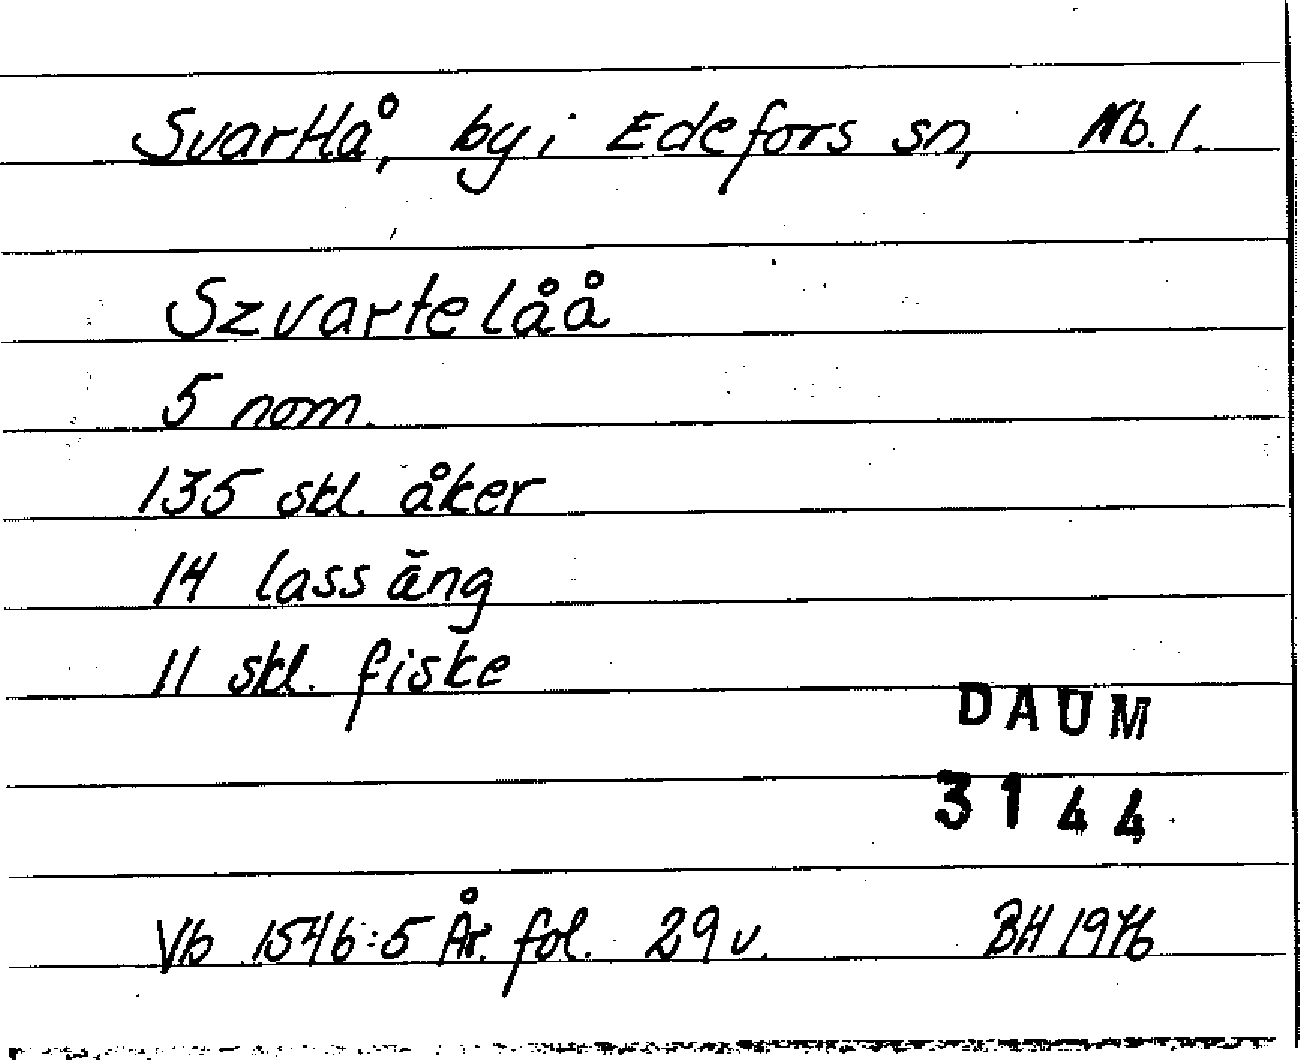 Svartlå, by i Edefors sn, Nb. l.
Szvartelåå
5 nom.
135 skl. åker
14 lass äng
11 skl. fiske
DAUM
3144
Vb 1546:5 År. fol. 29 v. BH 1976